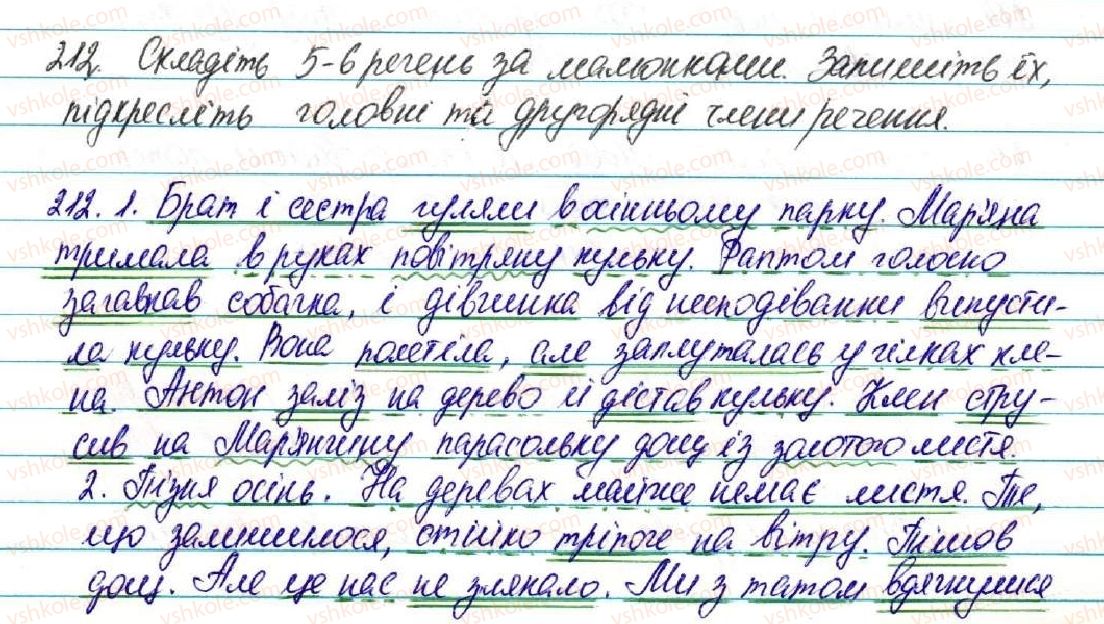 212. Складіть 5-6 речень за малюнками. Запишіть їх,
підкресліть головні та другорядні члени речення.
212. 1. Брат і сестра гуляли в осінньому парку. Мар'яна
тримала в руках повітряну кульку. Раптом голосно
загавкав собачка, і дівчинка від несподіванки випусти-
ла кульку. Вона полетіла, але заплуталась у гілках кле-
на. Антон заліз на дерево й дістав кульку. Клен стру-
сив на Мар'янчину парасольку дощ із золотого листя.
2. Пізня осінь. На деревах майже немає листя. Те,
що залишилося, стійко тріпоче на вітру. Пішов
дощ. Але це нас не злякало. Ми з татом вдягнулися